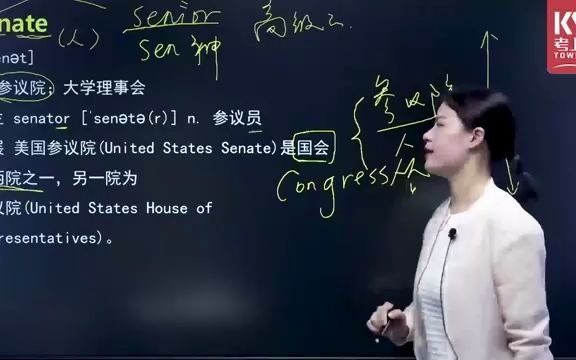 nate (人) senior 高级
sen 神
enət]
参议院; 大学理事会
senator [ˈsenətə(r)] n. 参议员
美国参议院(United States Senate)是国会
两院之一，另一院为
议院(United States House of
resentatives)。
参议院
Congress
KY
考上
TOWE